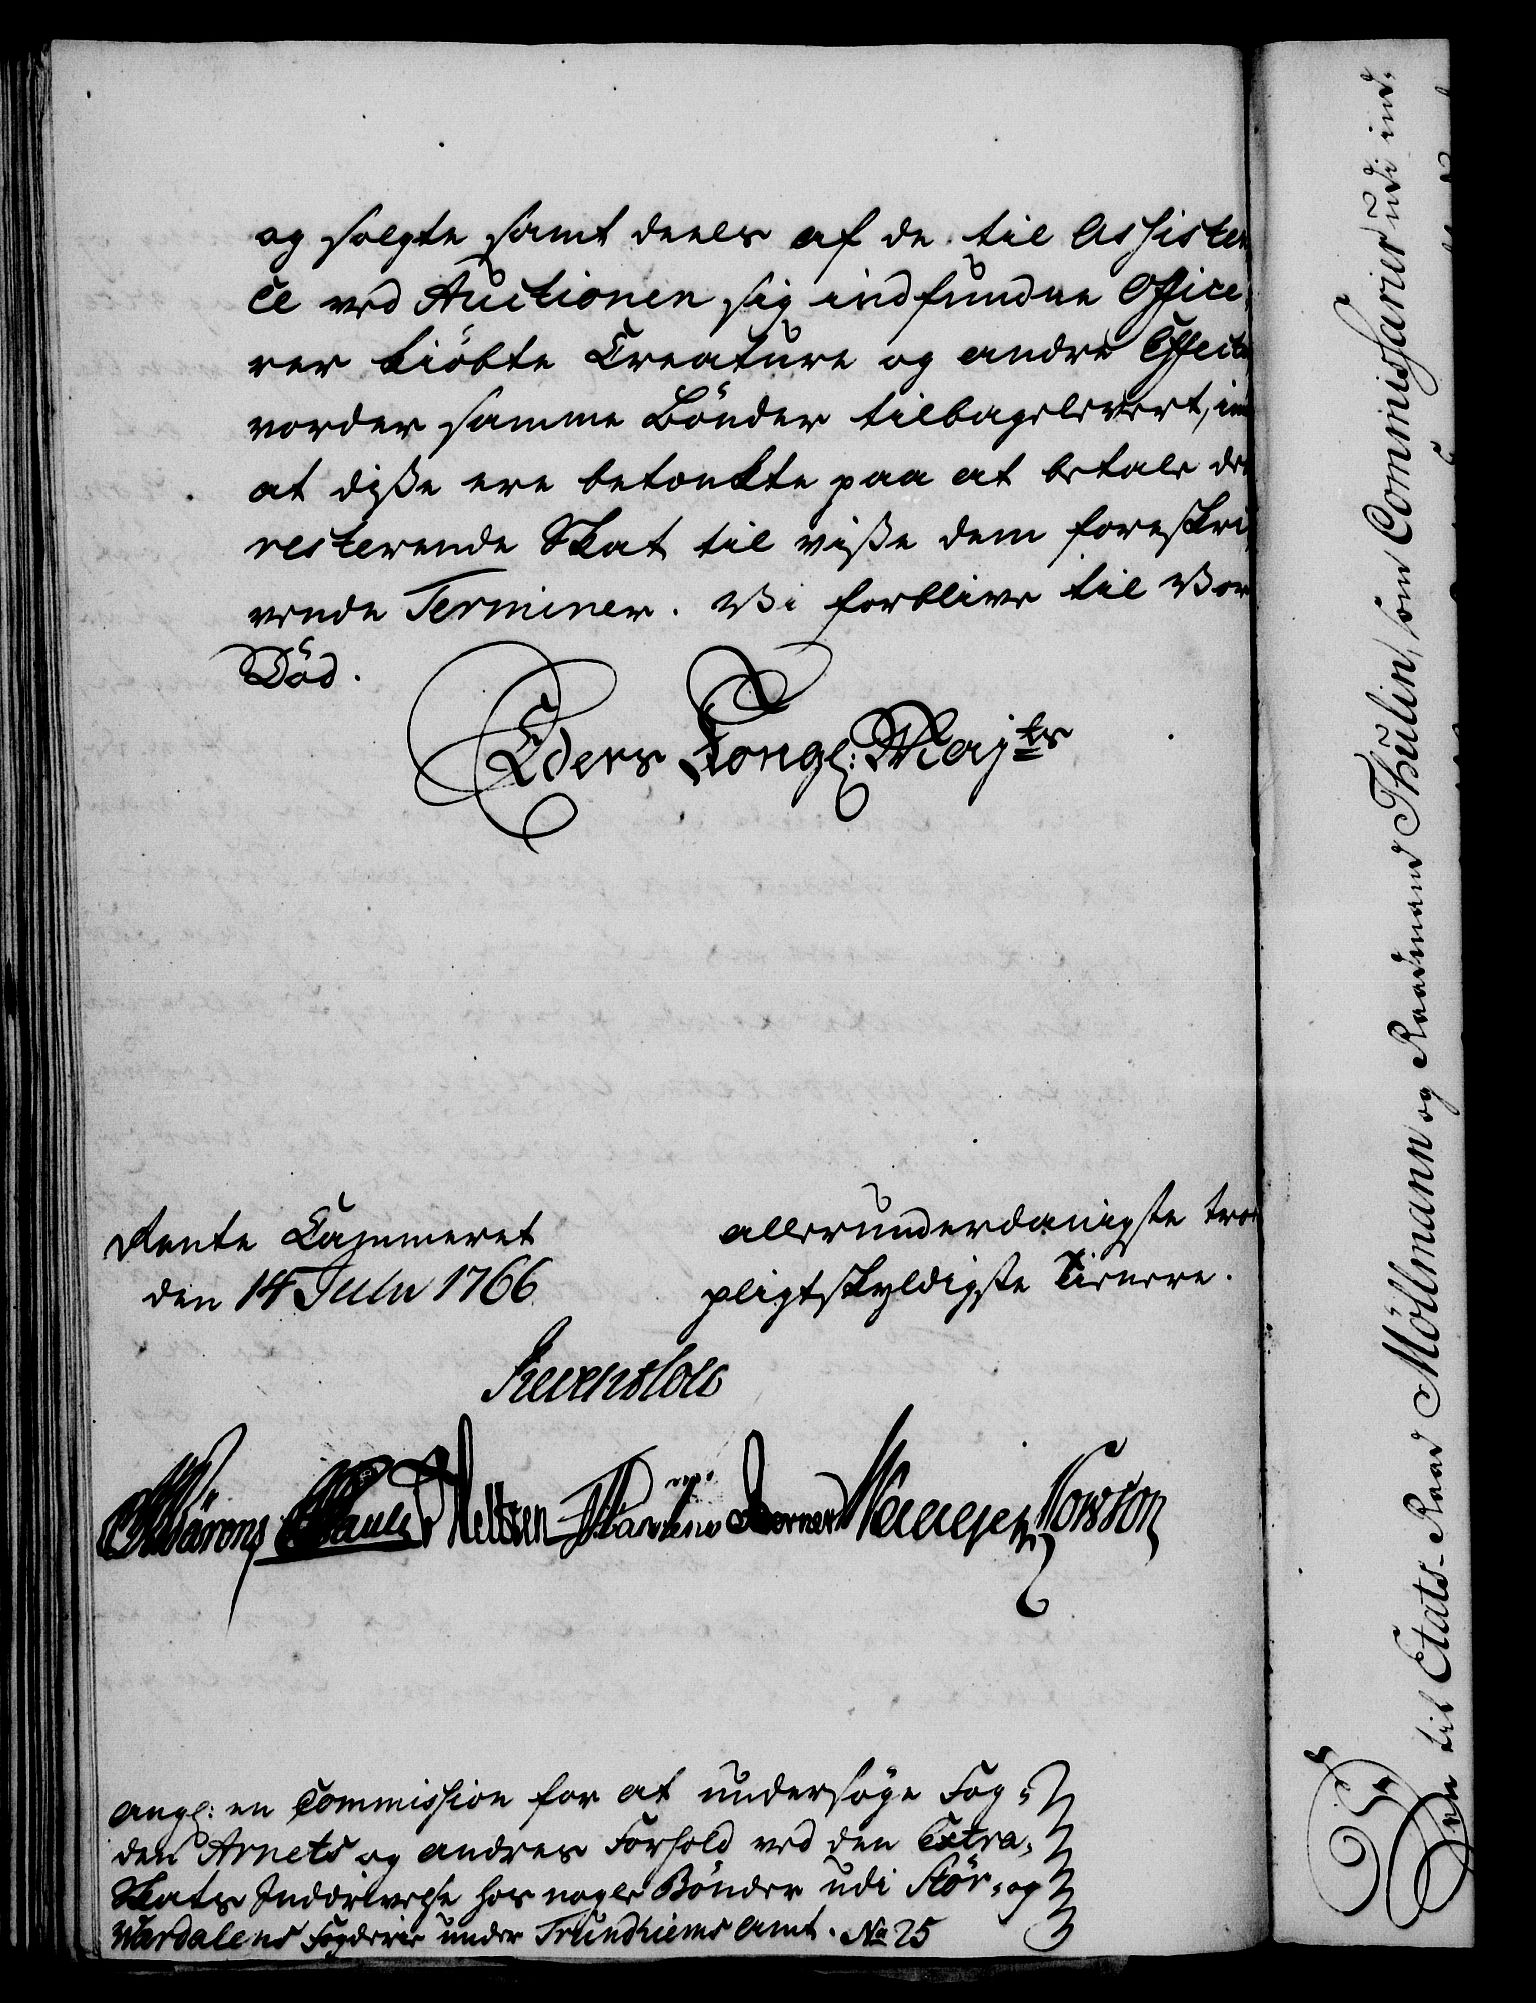 og solgte samt deels af de til Assisten
ce ved Auctionen sig indfundne Office,
rer kiöbte Creature og andre Effecter
vorder samme Bönder tilbageleveret, im
at diße ere betænkte paa at betale det
resterende Skat til viße dem foreskre,
vende Terminer. Vi forblive til Vor
Död.
Eders Kongl: Majts
Rente Cammeret
den 14 Julii 1766
allerunderdanigste troe
pligtskyldigste Tienere.
angl: en Commission for at undersöge Fog,
den Arnets og andres Forhold ved den Extra,
Skats Inddrivelse hos nogle Bönder udi Stör, og
Wardalens Fogderie under Trundhiems Amt. No 25
Den til Etats-Raad Möllmann og Raadmand Thulin, som Commissarier udi ind.